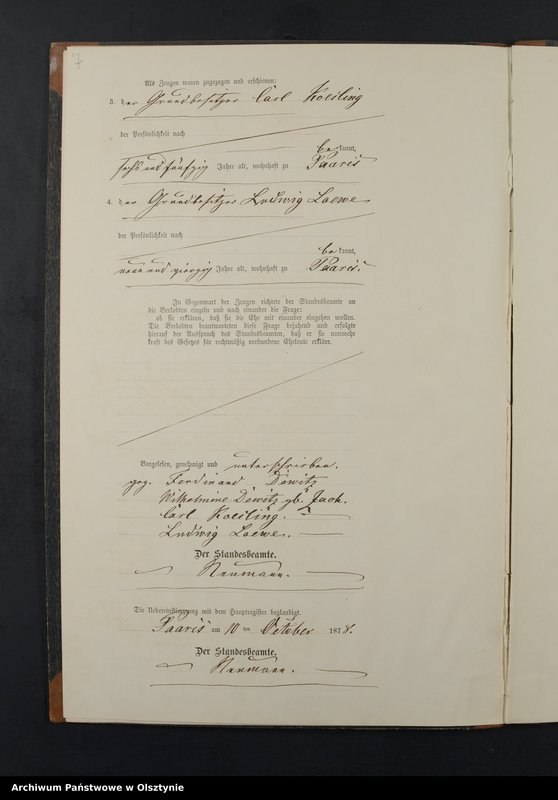 7
Als Zeugen waren zugezogen und erschienen:
3. der Grundbesitzer Carl Koesling
der Persönlichkeit nach
bekannt,
sechs und fünfzig Jahre alt, wohnhaft zu Paaris
4. der Grundbesitzer Ludwig Loewe
der Persönlichkeit nach
bekannt,
neun und vierzig Jahre alt, wohnhaft zu Paaris.
In Gegenwart der Zeugen richtete der Standesbeamte an
die Verlobten einzeln und nach einander die Frage:
ob sie erklären, daß sie die Ehe mit einander eingehen wollen.
Die Verlobten beantworteten diese Frage bejahend und erfolgte
hierauf der Ausspruch des Standesbeamten, daß er sie nunmehr
kraft des Gesetzes für rechtmäßig verbundene Eheleute erkläre.
Vorgelesen, genehmigt und unterschrieben.
gez. Ferdinand Dewitz
Wilhelmine Dewitz geb.
Carl Koesling.
Ludwig Loewe.
Der Standesbeamte.
Neumann.
Die Uebereinstimmung mit dem Hauptregister beglaubigt.
Paaris am 10 ten October 1878.
Der Standesbeamte.
Neumann.
Archiwum Państwowe w Olsztynie